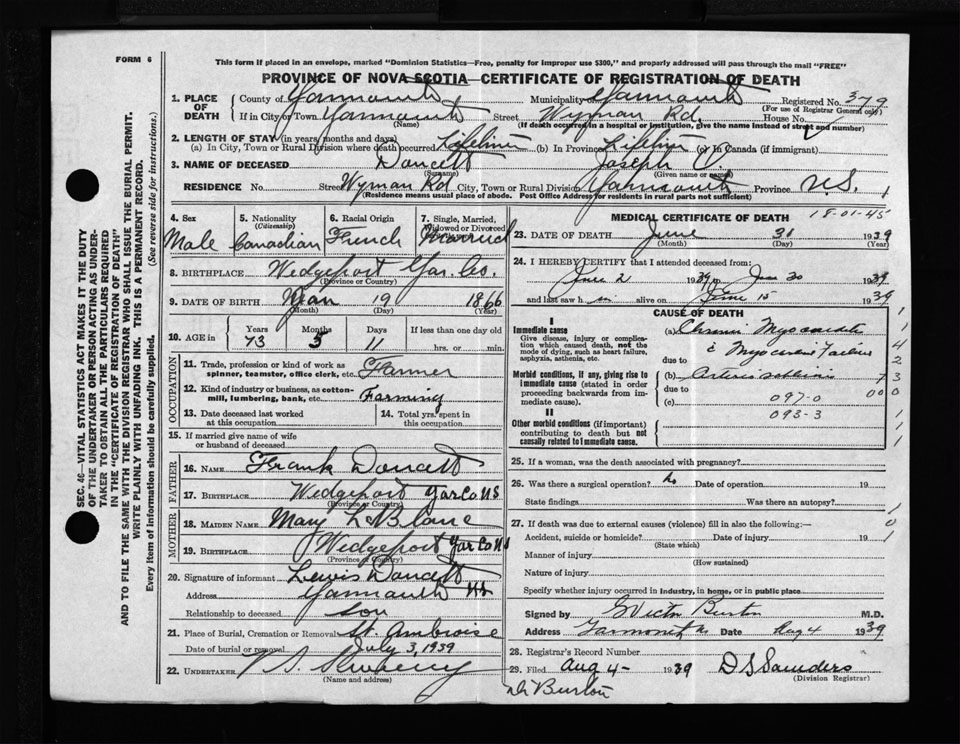 FORM 6
This form if placed in an envelope, marked "Dominion Statistics—Free, penalty for improper use $300," and properly addressed will pass through the mail "FREE"
PROVINCE OF NOVA SCOTIA—CERTIFICATE OF REGISTRATION OF DEATH
1. PLACE OF DEATH County of Yarmouth Municipality Yarmouth Registered No. 379
(For use of Registrar General only)
If in City or Town Yarmouth Street Wyman Rd. House No.
(Name) (If death occurred in a hospital or institution, give the name instead of street and number)
2. LENGTH OF STAY (in years, months and days)
(a) In City, Town or Rural Division where death occurred Lifetime (b) In Province Lifetime (c) In Canada (if immigrant)
3. NAME OF DECEASED Doucett Joseph V.
(Surname) (Given name or names)
RESIDENCE No. Street Wyman Rd City, Town or Rural Division Yarmouth Province N.S. 1
(Residence means usual place of abode. Post Office Address for residents in rural parts not sufficient)
4. Sex 5. Nationality (Citizenship) 6. Racial Origin 7. Single, Married, Widowed or Divorced
Male Canadian French Married
8. BIRTHPLACE Wedgeport Yar. Co.
(Province or Country)
9. DATE OF BIRTH Mar 19 1866
(Month) (Day) (Year)
10. AGE in Years Months Days If less than one day old
73 3 11 hrs. or min.
OCCUPATION
11. Trade, profession or kind of work as spinner, teamster, office clerk, etc. Farmer
12. Kind of industry or business, as cotton-mill, lumbering, bank, etc. Farming
13. Date deceased last worked at this occupation 14. Total yrs. spent in this occupation
15. If married give name of wife or husband of deceased
FATHER
16. NAME Frank Doucett
17. BIRTHPLACE Wedgeport Yar Co NS
(Province or Country)
MOTHER
18. MAIDEN NAME Mary LeBlanc
19. BIRTHPLACE Wedgeport Yar Co NS
(Province or Country)
20. Signature of informant Lewis Doucett
Address Yarmouth NS
Relationship to deceased Son
21. Place of Burial, Cremation or Removal St. Ambroise
Date of burial or removal July 3, 1939
22. UNDERTAKER V. S. Sweeny
(Name and address)
MEDICAL CERTIFICATE OF DEATH 18-01-45
23. DATE OF DEATH June 30 1939
(Month) (Day) (Year)
24. I HEREBY CERTIFY that I attended deceased from:
June 2 1939 to June 30 1939
and last saw h im alive on June 15 1939
CAUSE OF DEATH
I
Immediate cause
Give disease, injury or complication which caused death, not the mode of dying, such as heart failure, asphyxia, asthenia, etc.
(a) Chronic Myocarditis
Failure
due to
Morbid conditions, if any, giving rise to immediate cause (stated in order proceeding backwards from immediate cause).
(b)
due to
(c) 097-0
093-3
II
Other morbid conditions (if important) contributing to death but not causally related to immediate cause.
25. If a woman, was the death associated with pregnancy?
26. Was there a surgical operation? No Date of operation 19
State findings Was there an autopsy?
27. If death was due to external causes (violence) fill in also the following:—
Accident, suicide or homicide? Date of injury 19
(State which)
Manner of injury
(How sustained)
Nature of injury
Specify whether injury occurred in Industry, in home, or in public place
Signed by G Victor Burton M.D.
Address Yarmouth NS Date Aug 4 1939
28. Registrar's Record Number
29. Filed Aug 4 - 1939 D S Saunders
(Division Registrar)
Dr Burton
SEC. 46—VITAL STATISTICS ACT MAKES IT THE DUTY
OF THE UNDERTAKER OR PERSON ACTING AS UNDERTAKER
TO OBTAIN ALL THE PARTICULARS REQUIRED
IN THE "CERTIFICATE OF REGISTRATION OF DEATH"
AND TO FILE THE SAME WITH THE DIVISION REGISTRAR WHO SHALL ISSUE THE BURIAL PERMIT.
WRITE PLAINLY WITH UNFADING INK. THIS IS A PERMANENT RECORD.
Every item of Information should be carefully supplied. (See reverse side for instructions.)